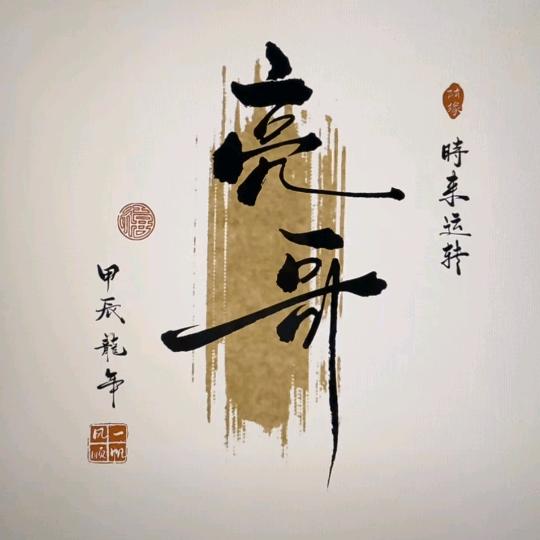 随缘
時来运转
亮哥
甲辰龍年
一帆
风顺